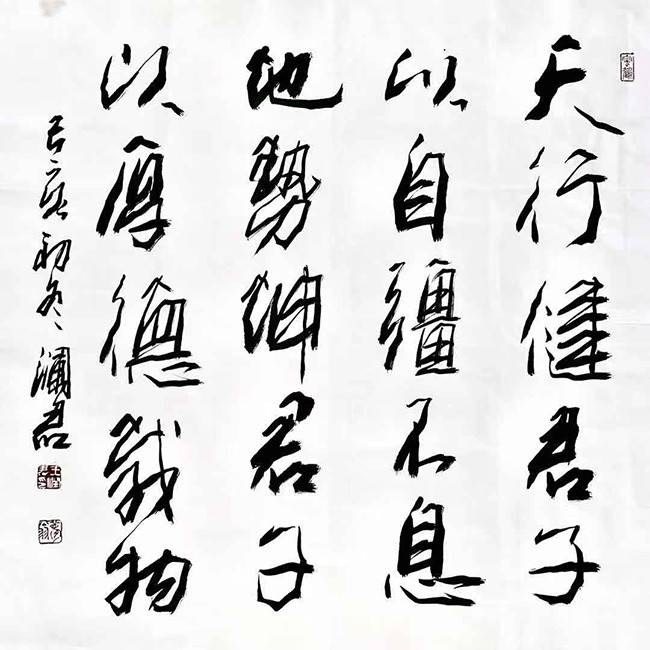 天行健君子
以自彊不息
地勢坤君子
以厚德載物
己亥初冬瀾君